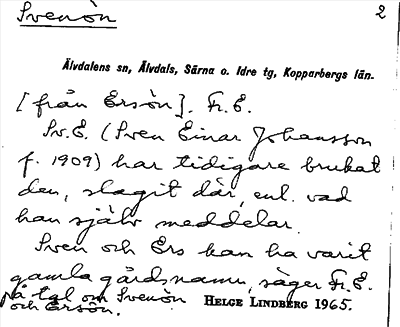 Svenön
2
Älvdalens sn, Älvdals, Särna o. Idre tg, Kopparbergs län.
[från Ersön]. Fr. E.
Sv. E. (Sven Einar Johansson
f. 1909) har tidigare brukat
den, slagit där, enl. vad
han själv meddelar.
Sven och Ers kan ha varit
gamla gårdsnamn, säger Fr. E.
på tal om Svenön
och Ersön.
HELGE LINDBERG 1965.